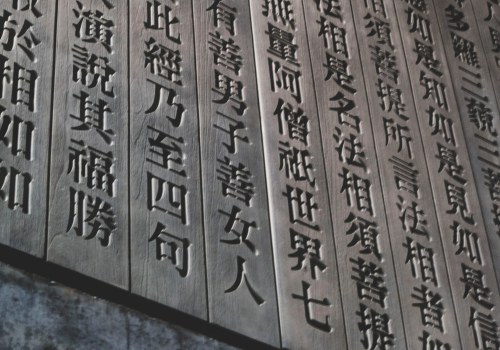 多羅三藐三
如是知如是見如是信
相須菩提所言法相者如
法相是名法相須菩提
無量阿僧祇世界七
有善男子善女人
此經乃至四句
演說其福勝
於相如如